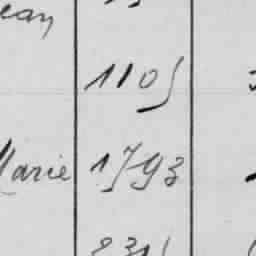 ean
1105
Marie 1793